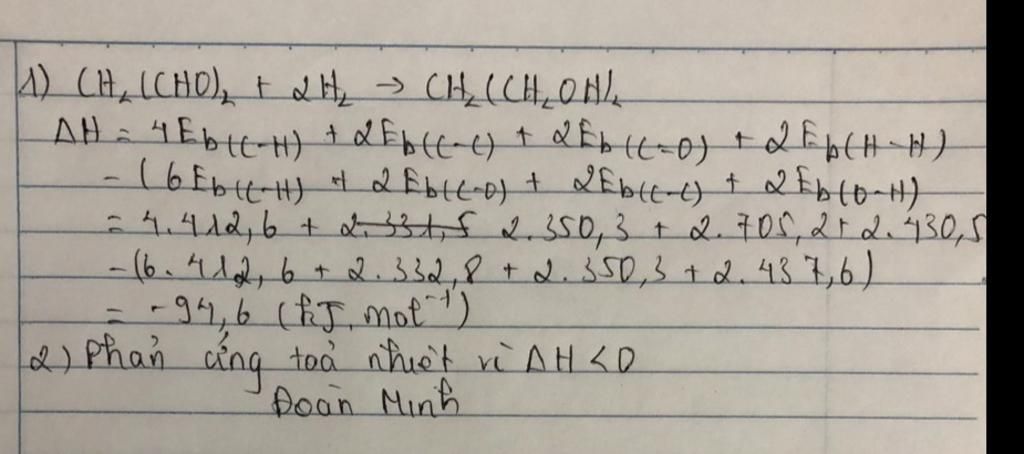 1) CH₂(CHO)₂ + 2H₂ → CH₂(CH₂OH)₂
ΔH = 4Eb(C-H) + 2Eb(C-C) + 2Eb(C=O) + 2Eb(H-H)
- (6Eb(C-H) + 2Eb(C-O) + 2Eb(C-C) + 2Eb(O-H)
= 4.412,6 + 2.331,5 2.350,3 + 2.705,2 + 2.430,5
-(6.412,6 + 2.332,8 + 2.350,3 + 2.437,6)
= -94,6 (kJ.mol⁻¹)
2) Phản ứng toả nhiệt vì ΔH < 0
Đoàn Minh